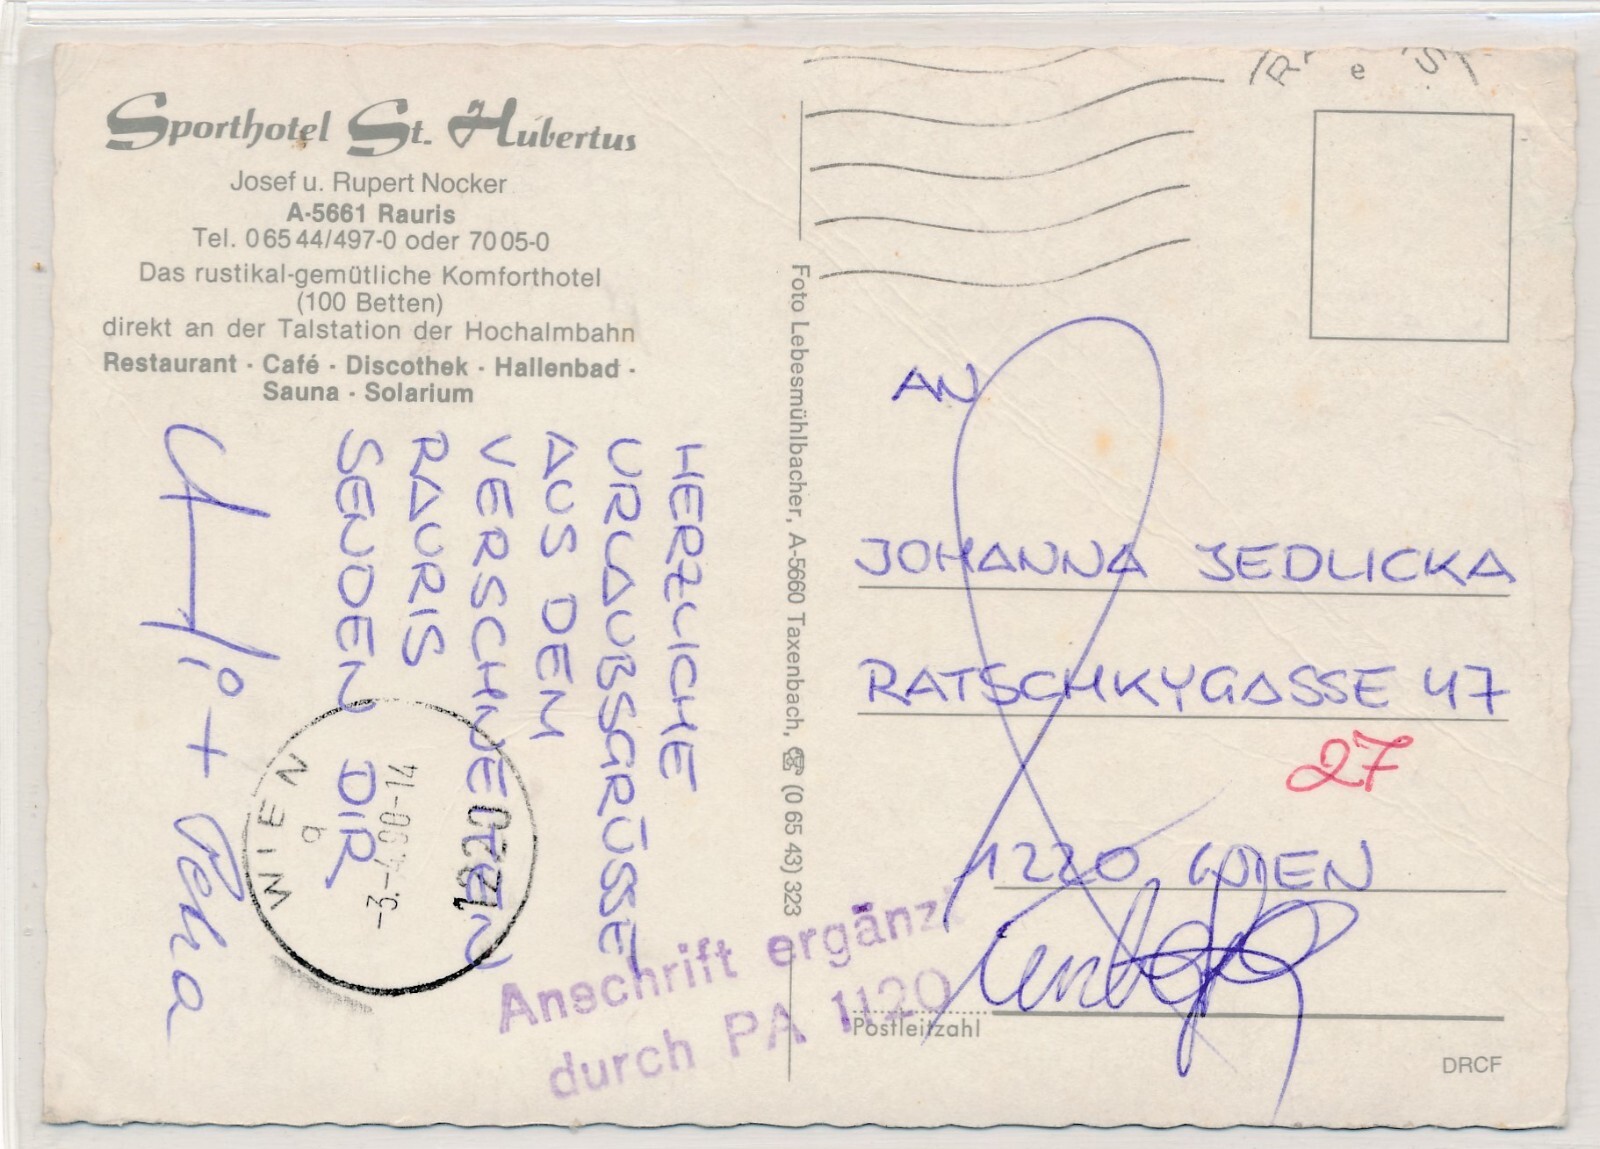 Sporthotel St. Hubertus
Josef u. Rupert Nocker
A-5661 Rauris
Tel. 06544/497-0 oder 7005-0
Das rustikal-gemütliche Komforthotel
(100 Betten)
direkt an der Talstation der Hochalmbahn
Restaurant · Café · Discothek · Hallenbad ·
Sauna · Solarium
HERZLICHE
URLAUBSGRÜSSE
AUS DEM
VERSCHNEITEN
RAURIS
SENDEN DIR
WIEN
-3.-4.90-14
1220
Foto Lebesmühlbacher, A-5660 Taxenbach, ☎ (0 65 43) 323
AN
JOHANNA JEDLICKA
RATSCHKYGASSE 47
27
1220 WIEN
Anschrift ergänzt
durch PA 1120
Postleitzahl
DRCF